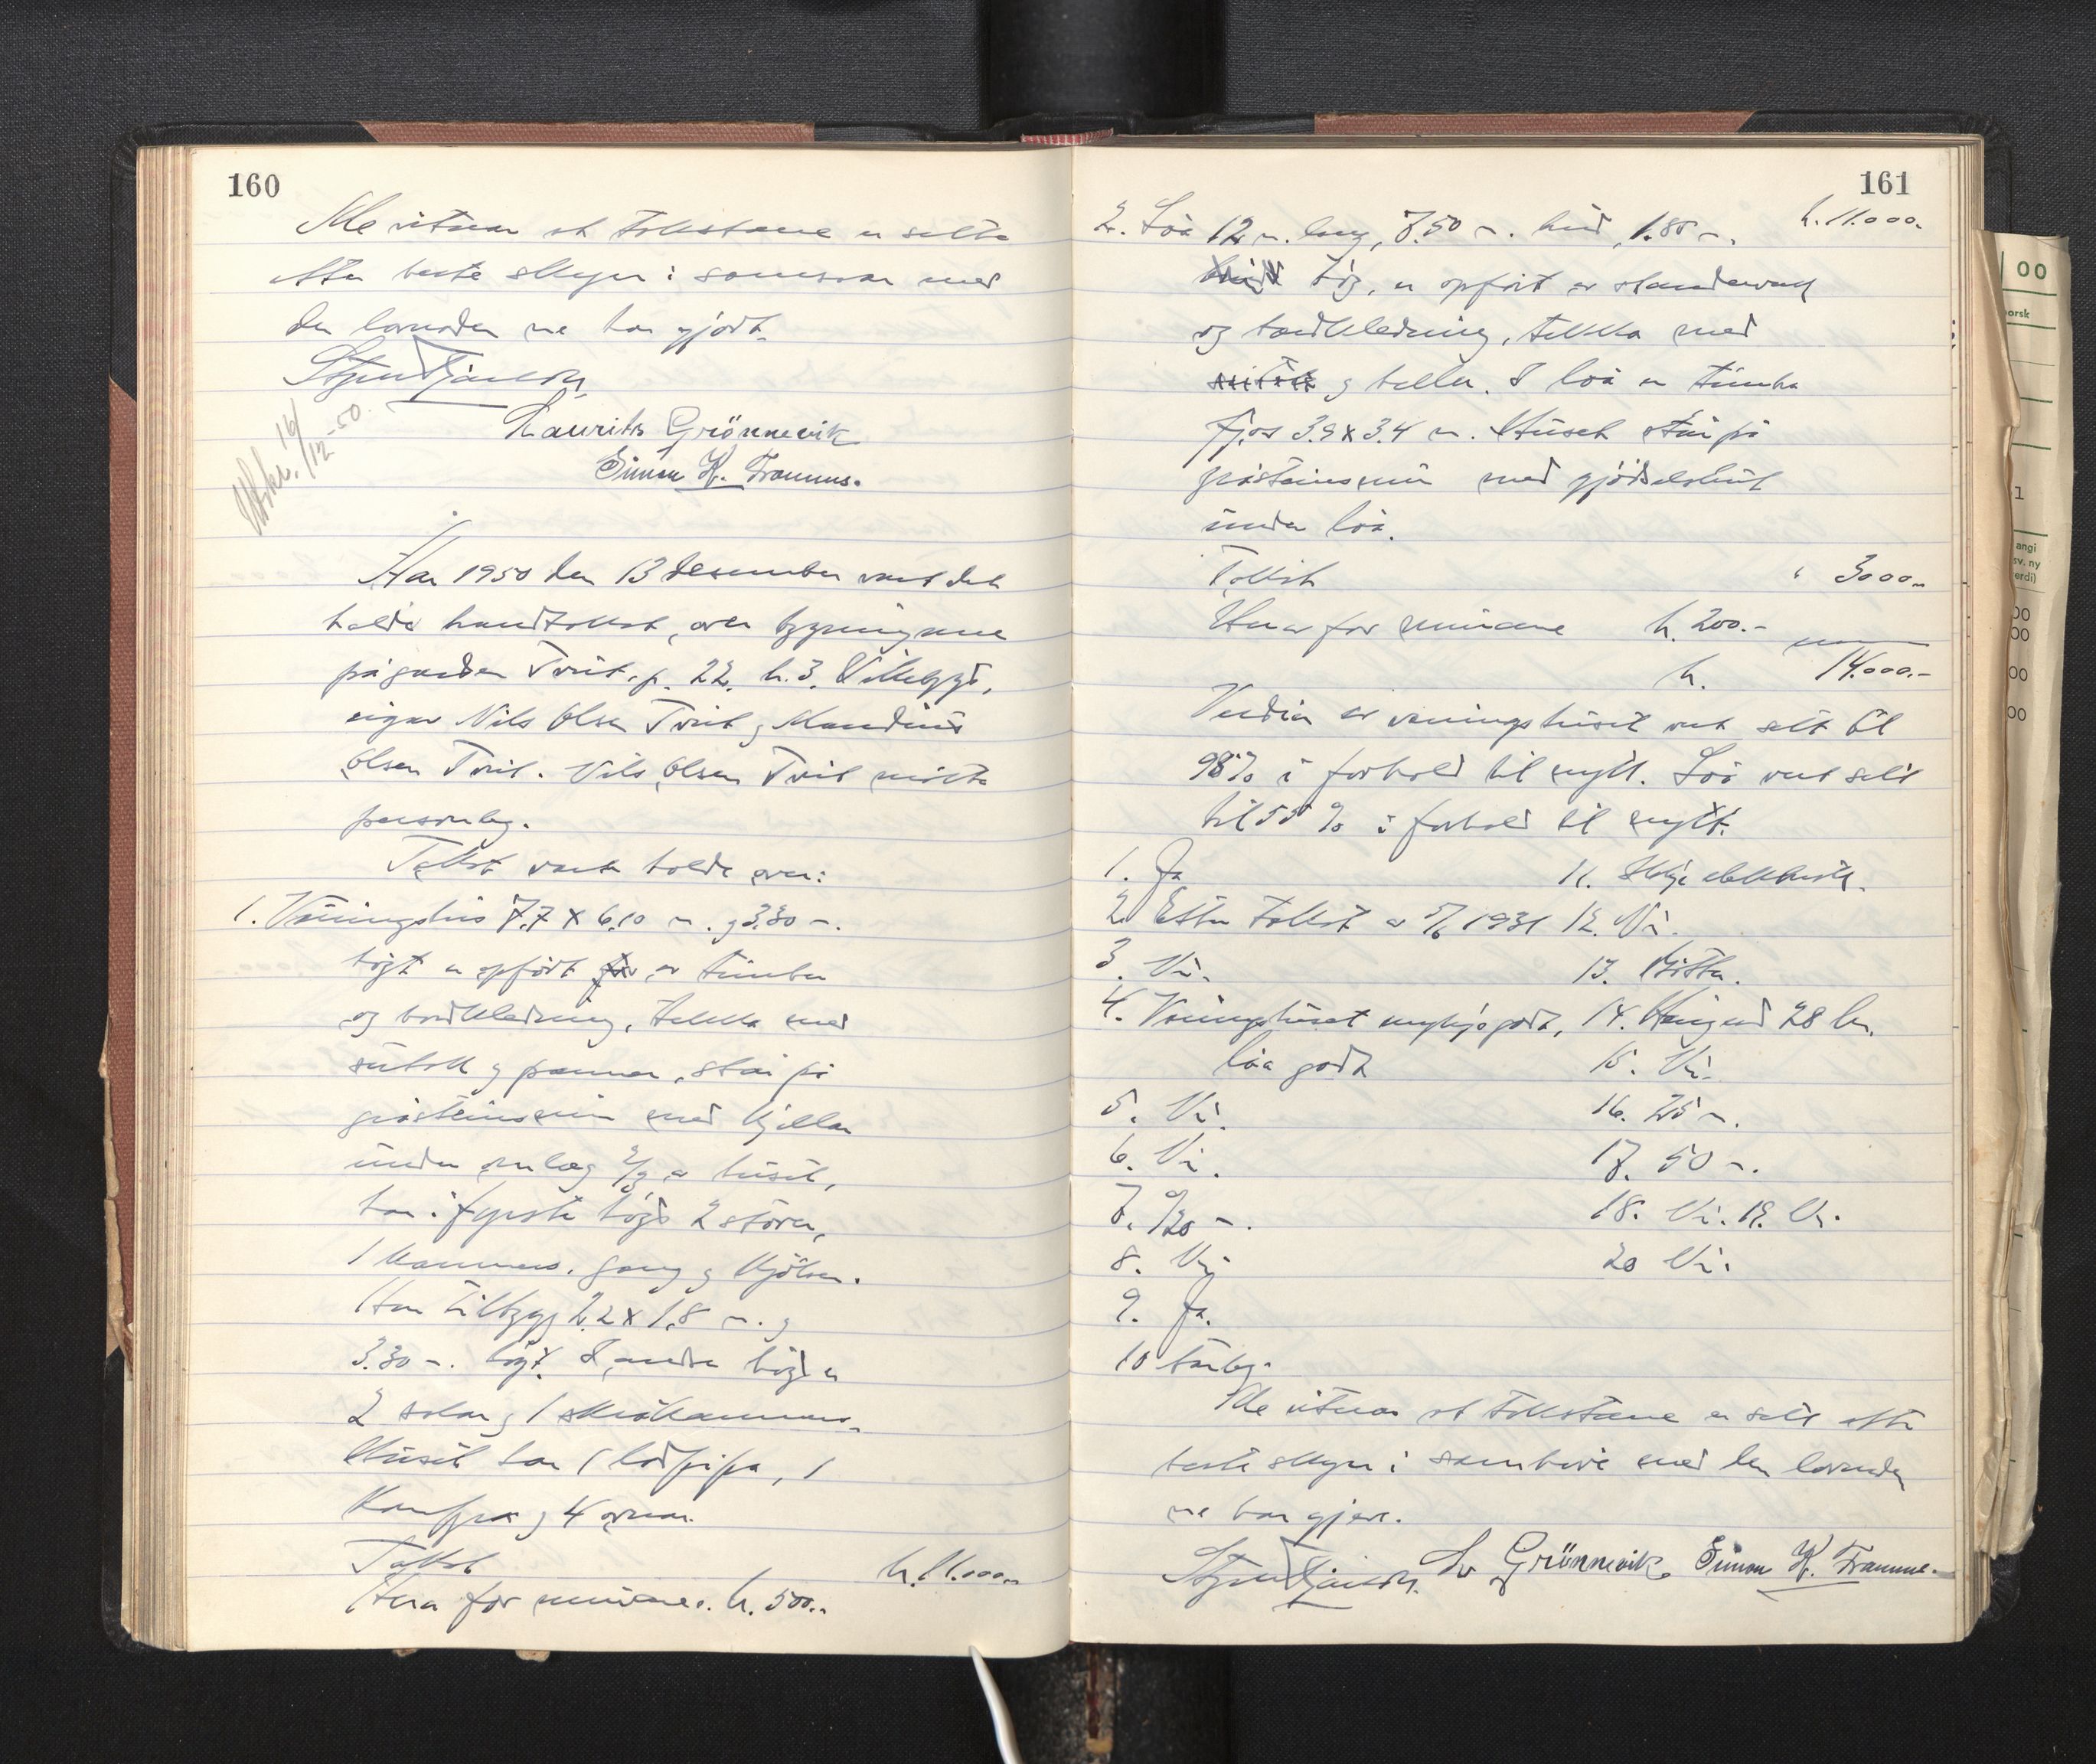 160
Me vitnar at takstane er sette
etter beste skyn i samsvar med
den lovnaden me har gjort.
Laurits Grönnevik
Simon K. Framnes.
Utskr. 16/12-50
År 1950 den 13 desember vart det
halde brandtakst over bygningane
på garden Tveit, g. 22, b. 3,
eigar Nils Olsen Tveit og
Olsen Tveit. Nils Olsen Tveit møtte
personleg.
Takst vart halde over:
1. Våningshus 7.7 x 6.10 m. og 3.30 m.
högt er opfört av timber
og bordkledning, tekka med
sutak og panner, står på
gråsteinsmur med kjellar
under umlag 2/3 av huset,
har i fyrste högd 2 stover,
1 kammers, gang og kjöken.
Har tilbygg 2.2 x 1.8 m. og
3.30 m. högt. I andre högd er
2 salar og 1 skråkammers.
Huset har 1 lodpipa, 1
komfyr og 4 omnar.
Takst kr. 11.000.-
Herav for murane kr. 500.-
161
kr. 11.000.-
2. Löa 12 m. lang, 7.50 m. breid, 1.80 m.
hög, er opfört av standarverk
og bordkledning, tekka med
og heller. I löa er timbra
fjos 3.9 x 3.4 m. Huset står på
gråsteinsmur med gjödselshus
under löa.
Takst " 3000.-
Herav for murane kr. 200.-
kr. 14.000.-
Verdien av våningshuset vart sett til
98% i forhold til nytt. Löa vart sett
til 55 % i forhold til nytt.
1. Ja 11. Ikkje elektrisk.
2. Etter takst av 5/6 1931 12. Nei.
3. Nei. 13. Bötta.
4. Våningshuset mykje godt, 14. Haugesund 28 km.
löa godt 15. Nei.
5. Nei. 16. 25 m.
6. Nei. 17. 50 m.
7. 9/20 m. 18. Nei. 19. Nei.
8. Nei 20 Nei.
9. Ja.
10 Farleg.
Me vitnar at takstane er sett etter
beste skyn i samhøve med den lovnaden
me har gjeve.
Grönnevik Simon K. Framnes.